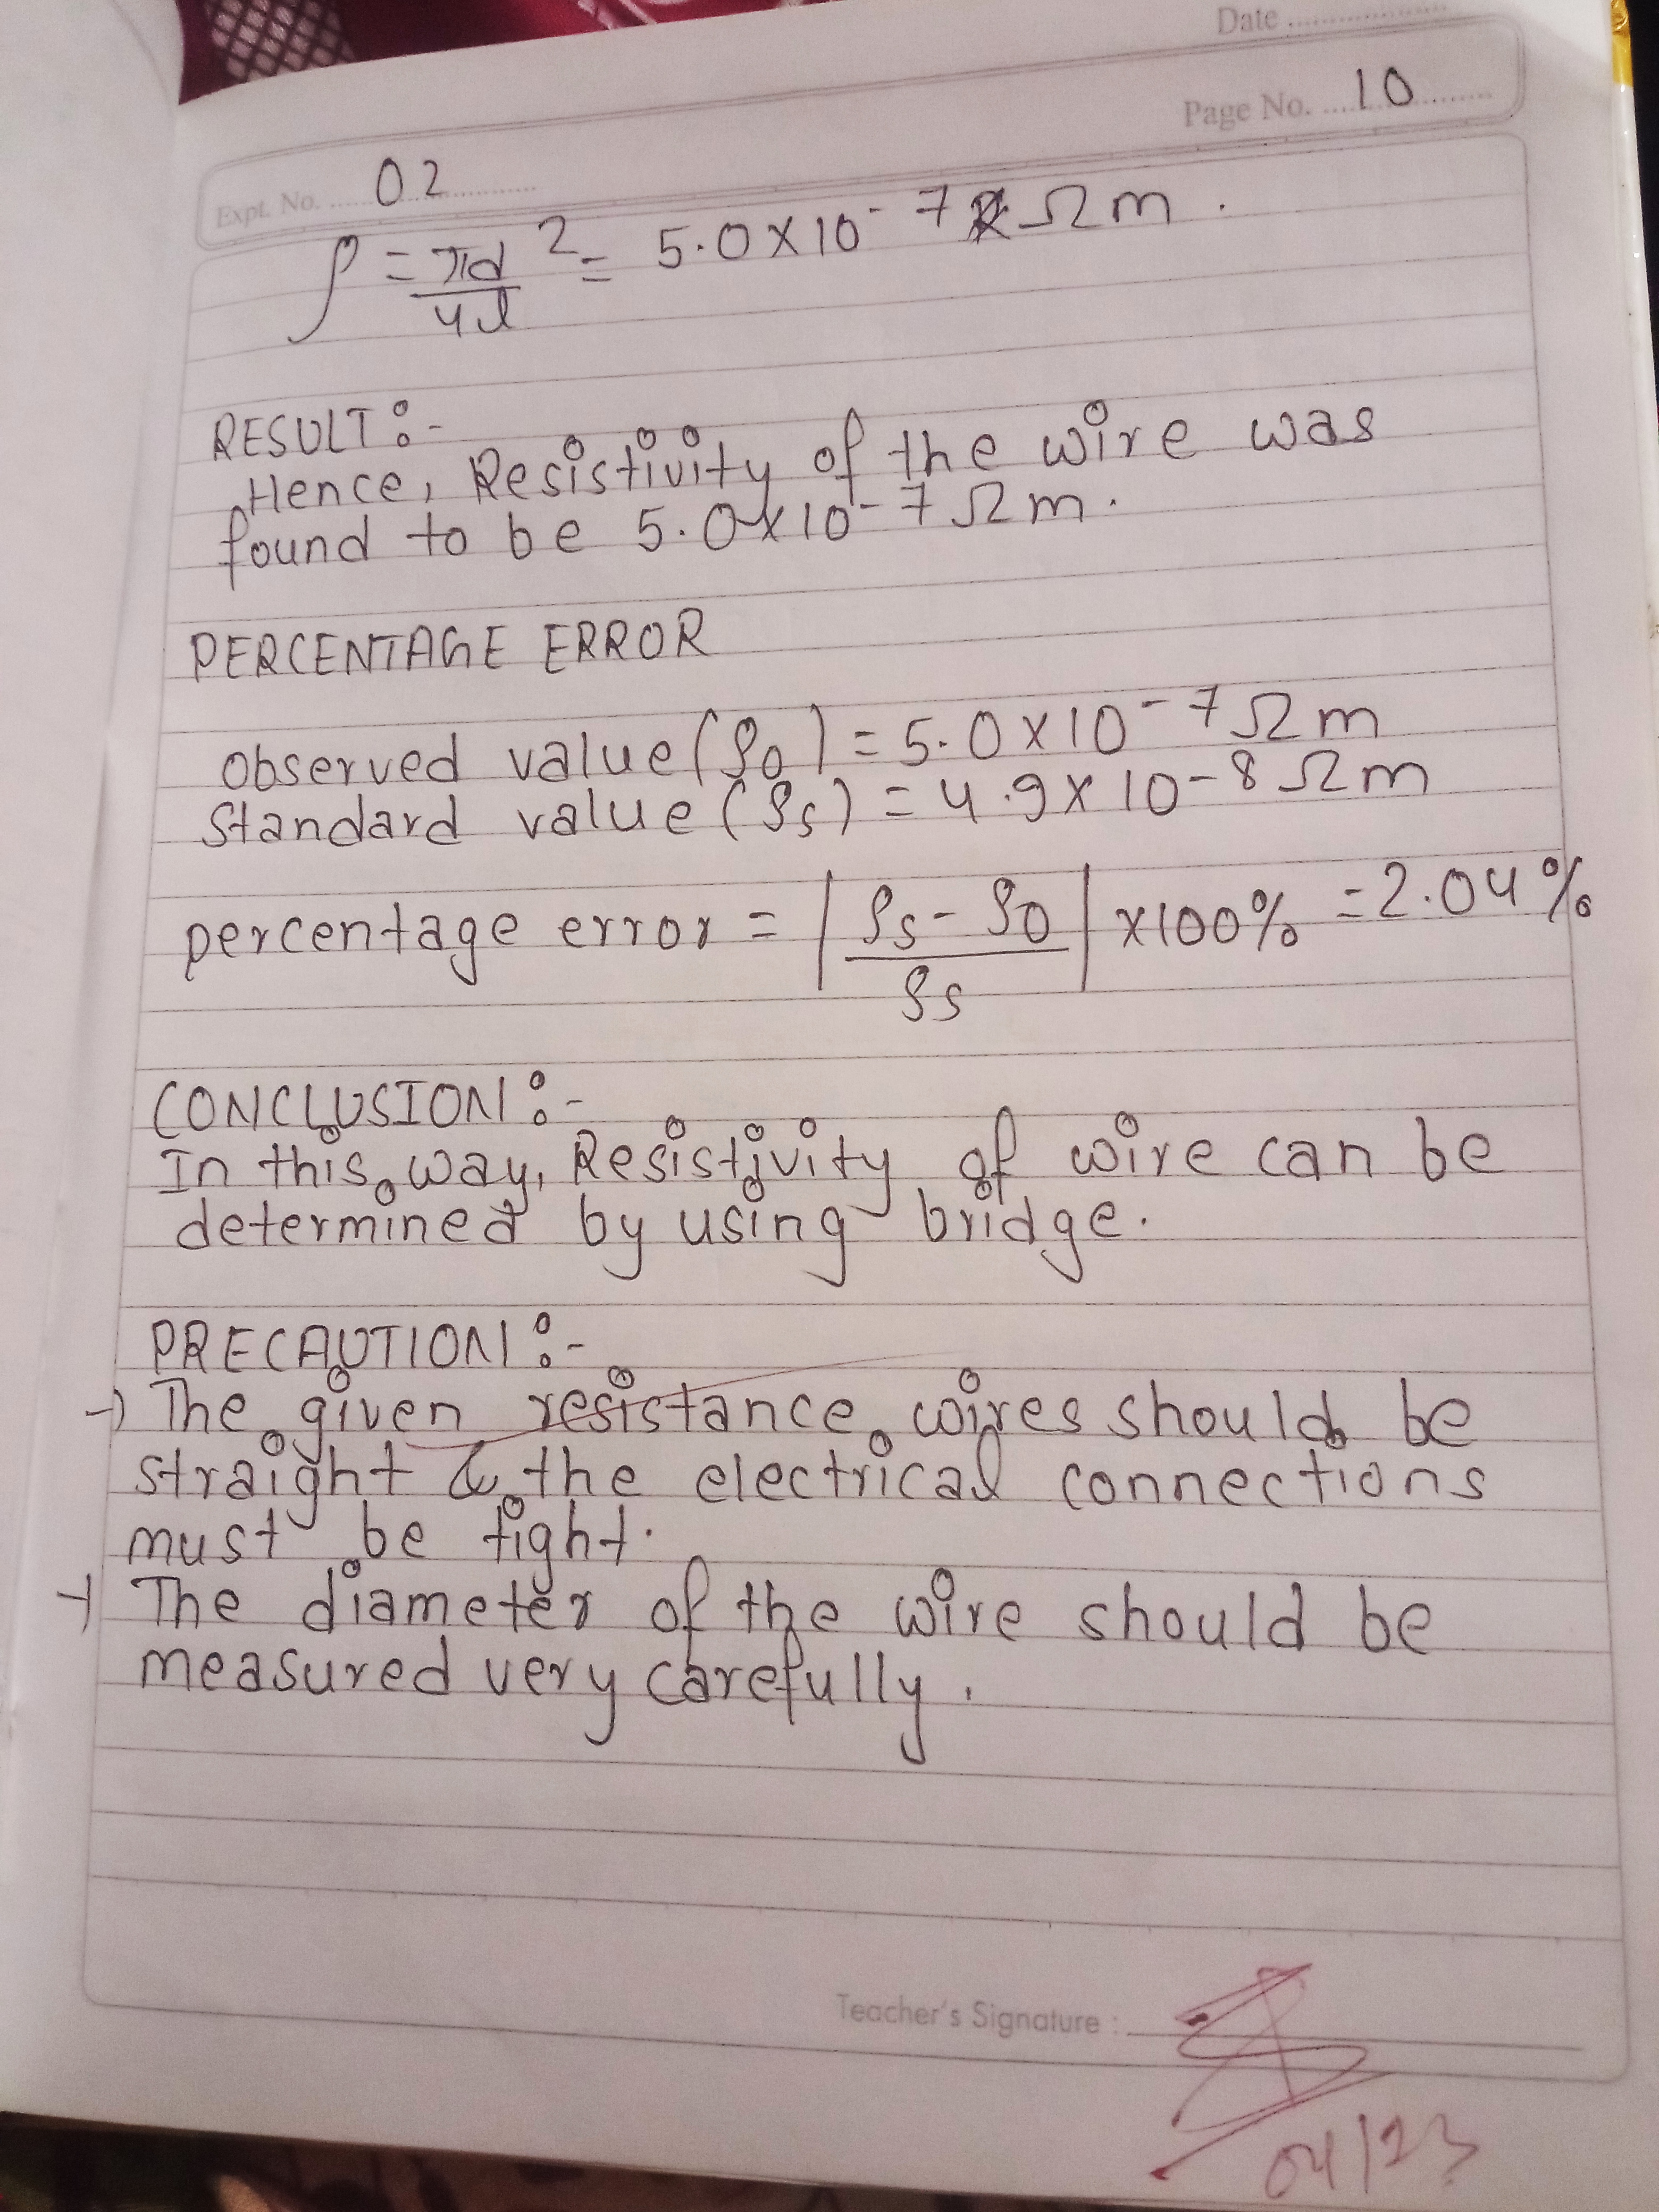 Date
Page No. 10
Expt. No. 02
ρ = πd²/4l = 5.0×10-7 Ωm.
RESULT:-
Hence, Resistivity of the wire was
found to be 5.0×10-7Ωm.
PERCENTAGE ERROR
Observed value(ρ0) = 5.0×10-7Ωm
Standard value(ρs) = 4.9×10-8Ωm
percentage error = |ρs-ρ0/ρs| ×100% = 2.04%
CONCLUSION:-
In this way, Resistivity of wire can be
determined by using bridge.
PRECAUTION:-
→ The given resistance wires should be
straight & the electrical connections
must be tight.
→ The diameter of the wire should be
measured very carefully.
Teacher's Signature :
04/23